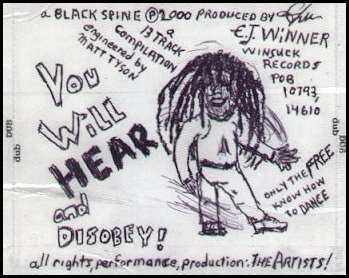 a BLACK SPINE Ⓟ2000 PRODUCED BY
E.J. WINNER
WINSUCK
RECORDS
POB
10793,
14610
a
13 TRACK
COMPILATION
engineered by
MATT TYSON
YOU
WILL
HEAR
and
DISOBEY!
ONLY THE FREE
KNOW HOW
TO DANCE
DUB
dub
DUB
dub
all rights, performance, production: THE ARTISTS!